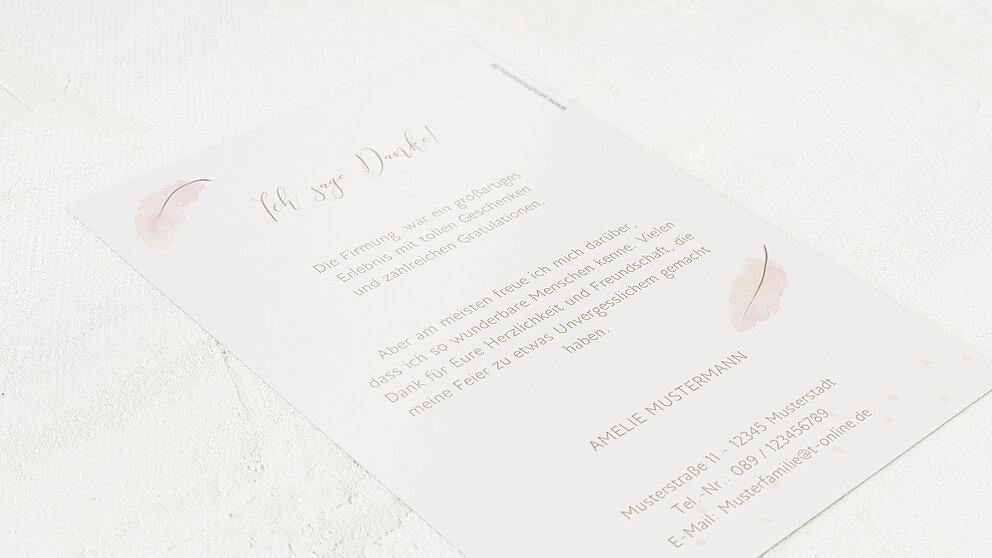 Ich sage Danke!
Die Firmung war ein großartiges
Erlebnis mit tollen Geschenken
und zahlreichen Gratulationen.
Aber am meisten freue ich mich darüber,
dass ich so wunderbare Menschen kenne. Vielen
Dank für Eure Herzlichkeit und Freundschaft, die
meine Feier zu etwas Unvergesslichem gemacht
haben.
AMELIE MUSTERMANN
Musterstraße 11 - 12345 Musterstadt
Tel.-Nr.: 089 / 123456789
E-Mail: Musterfamilie@t-online.de